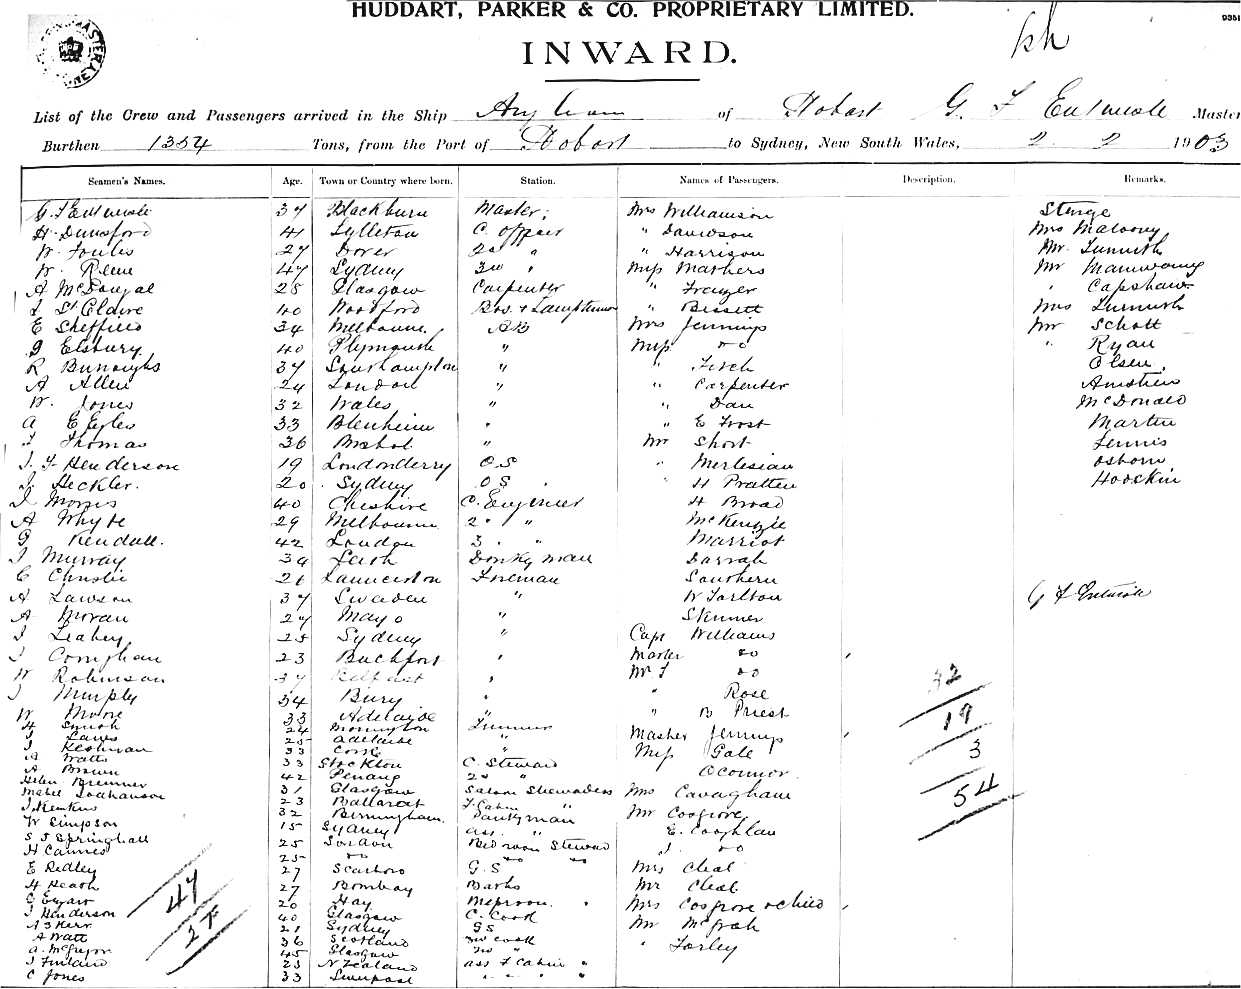 HUDDART, PARKER & CO. PROPRIETARY LIMITED.
INWARD.
List of the Crew and Passengers arrived in the Ship of Hobart G. F Entwisle Master
Burthen 1354 Tons, from the Port of Hobart to Sydney, New South Wales, 2 2 1903
Seamen's Names. Age. Town or Country where born. Station. Names of Passengers. Description. Remarks.
G F Entwisle 37 Blackburn Master; Mrs Williamson Sturge
H Dunsford 41 C. Officer " Davidson Mrs Malooney
W. 27 Dover 2nd " " Harrison Mr.
W. 47 Sydney 3rd " Miss Mathers Mr
A McDougal 28 Glasgow Carpenter " Frazer " Capshaw
J St Claire 40 Woodford Bos. & Lamptrimmer " Bissett Mrs
E Sheffield 34 Melbourne AB Mrs Jennings Mr Schott
G Elsbury 40 Plymouth " Miss do " Ryan
R Burroughs 37 Southampton " " Fitch Olsen
A Allen 24 London " " Carpenter
W. Jones 32 Wales " " Dan McDonald
A E Eagles 33 Blenheim " " E Frost Martin
F Thomas 36 Bristol " Mr Short Tennis
J. F Henderson 19 Londonderry O.S " Osborn
J. Heckler. 20 Sydney O S " H Pratten
J Morris 40 Cheshire C. Engineer H Broad
A Whyte 29 Melbourne 2 " " McKenzie
G Kendall. 42 London 3 " " Marriot
J Murray 39 Leith Donkeyman Darrah
C Christie 26 Launceston Foreman Southern
A Lawson 37 Sweden " W Tarlton G F Entwisle
A Moran 27 Mayo " Skinner
J Leahey 25 Sydney " Capt Williams
J 23 " Master do
W Robinson 37 Belfast " Mr F do 32
J Murphy 34 Bury " " Rose
W Moore 33 Adelaide " " B Priest 19
H Smith 24 Mornington Trimmers
J Laws 25 Adelaide " Master Jennings
J 33 Cork " Miss Gale 3
A Watts 33 Stockton C. Steward
A Brown 42 Penang 2nd " O'Connor
Helen Bremner 31 Glasgow Saloon Stewardess Mrs Cavagham 54
Mabel 23 Ballarat F. Cabin "
J. 32 Birmingham. Pantryman Mr Cosgrove
W Simpson 15 Sydney ass. " E. Coghlan
S J Springhall 25 London Bedroom Steward J. do
H 25 do do do
E Dedley 27 Scarboro G.S Mrs Cleal
H Heath 27 Bombay Mr Cleal
C 20 Hay Messroom. " Mrs Cosgrove & child
J Henderson 40 Glasgow C. Cook
A S Kerr 21 Sydney GS Mr
A Watt 36 Scotland 2nd cook
A. McGregor 45 Glasgow " Farley
J 23 N Zealand ass F Cabin "
C Jones 33 Liverpool " " " "
47